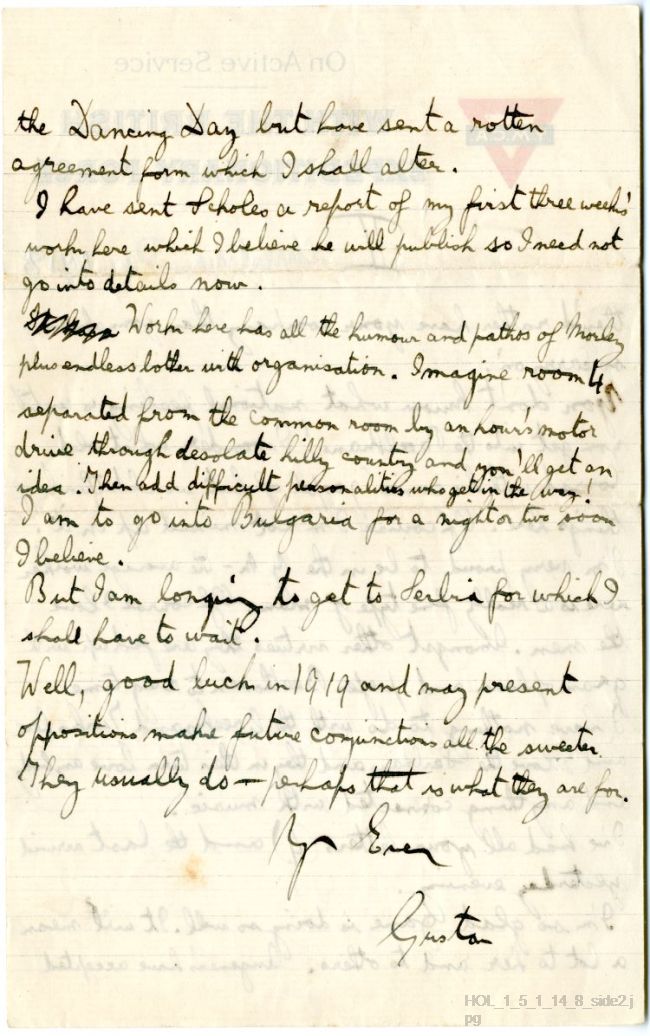 the Dancing Day but have sent a rotten
agreement form which I shall alter.
I have sent Scholes a report of my first three week's
work here which I believe he will publish so I need not
go into details now.
Work here has all the humour and pathos of Morley
plus endless bother with organisation. Imagine room 4
separated from the common room by an hour's motor
drive through desolate hilly country and you'll get an
idea. Then add difficult personalities who get in the way!
I am to go into Bulgaria for a night or two soon
I believe.
But I am longing to get to Serbia for which I
shall have to wait.
Well, good luck in 1919 and may present
oppositions make future conjunctions all the sweeter.
They usually do — perhaps that is what they are for.
Yr Ever
Gustav
HOL_1_5_1_14_8_side2.j
pg